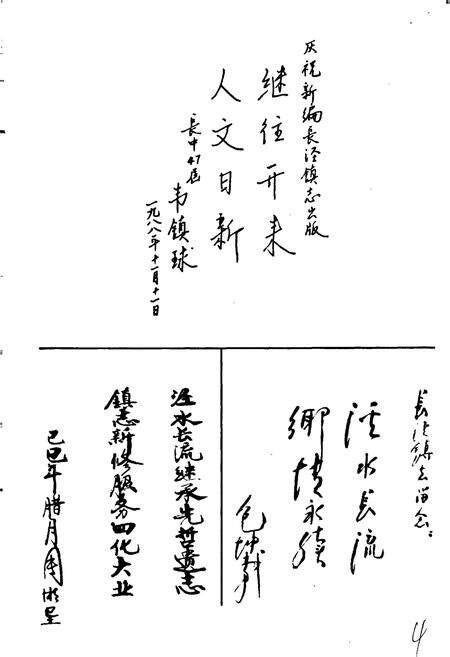 庆祝新编長泾镇志出版
继往开来
人文日新
長中47届
韦镇球
一九八八年十一月十一日
長泾镇志留念：
泾水長流
乡情永续
泾水长流继承先哲遗志
鎮志新修服务四化大业
己巳年腊月
4